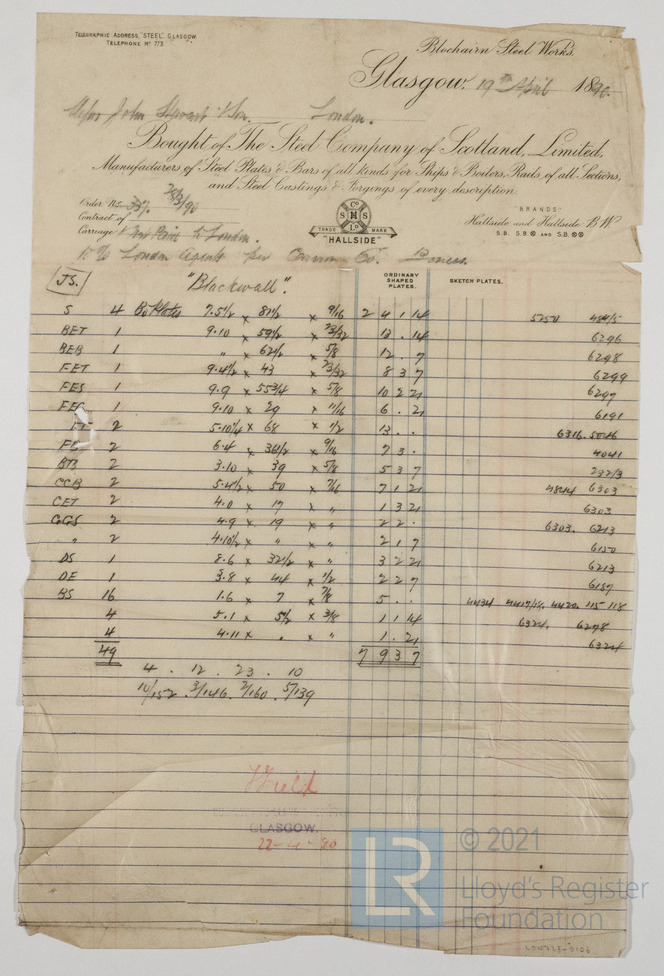 TELEGRAPHIC ADDRESS, "STEEL", GLASGOW
TELEPHONE No 773.
Blochairn Steel Works.
Glasgow, 19th April 1890.
Messrs John Stewart & Son. London.
Bought of The Steel Company of Scotland, Limited,
Manufacturers of Steel Plates & Bars of all kinds for Ships & Boilers, Rails, of all Sections,
and Steel Castings & Forgings of every description.
Order No
Contract of
Carriage to London.
BRANDS
Hallside and Hallside B W
S.B. S.B. AND S.B.
S Co H S Ld
TRADE MARK
"HALLSIDE"
London Agents per Co.
JS. "Blackwall".
ORDINARY SHAPED PLATES.
SKETCH PLATES.
S 4 Bo Plates 7.5½ × 81½ × 9/16 2 4 1 14 5250
BET 1 9.10 × 59½ × 23/32 13 . 14 6296
BEB 1 " × 62½ × 5/8 12 . 7 6298
FET 1 9.4½ × 43 × 23/32 8 3 7 6299
FES 1 9.9 × 55¾ × 5/8 10 2 21 6297
1 9.10 × 29 × 11/16 6 . 21 6191
2 5.10¼ × 68 × 1/2 13 . . 6316.
2 6.4 × 36½ × 9/16 7 3 . 4041
BTB 2 3.10 × 39 × 5/8 5 3 7
CCB 2 5.4½ × 50 × 7/16 7 1 21 6303
CET 2 4.0 × 17 × " 1 3 21 6303
GGS 2 4.9 × 19 × " 2 2 . 6303. 6213
" 2 4.10½ × " × " 2 1 7 6150
DS 1 8.6 × 32½ × " 3 2 21 6213
DE 1 3.8 × 44 × 1/2 2 2 7 6187
BS 16 1.6 × 7 × 7/8 5 . . 4434 4417/18. 4420. 115 118
4 5.1 × 5½ × 3/8 1 1 14 6324. 6278
4 4.11 × . × " 1 . 21 6324
49 7 9 3 7
4 . 12 . 23 . 10
10/152 . 3/146 . 2/160 . 5/139
GLASGOW.
22-4-90
LR
© 2021
Lloyd's Register
Foundation